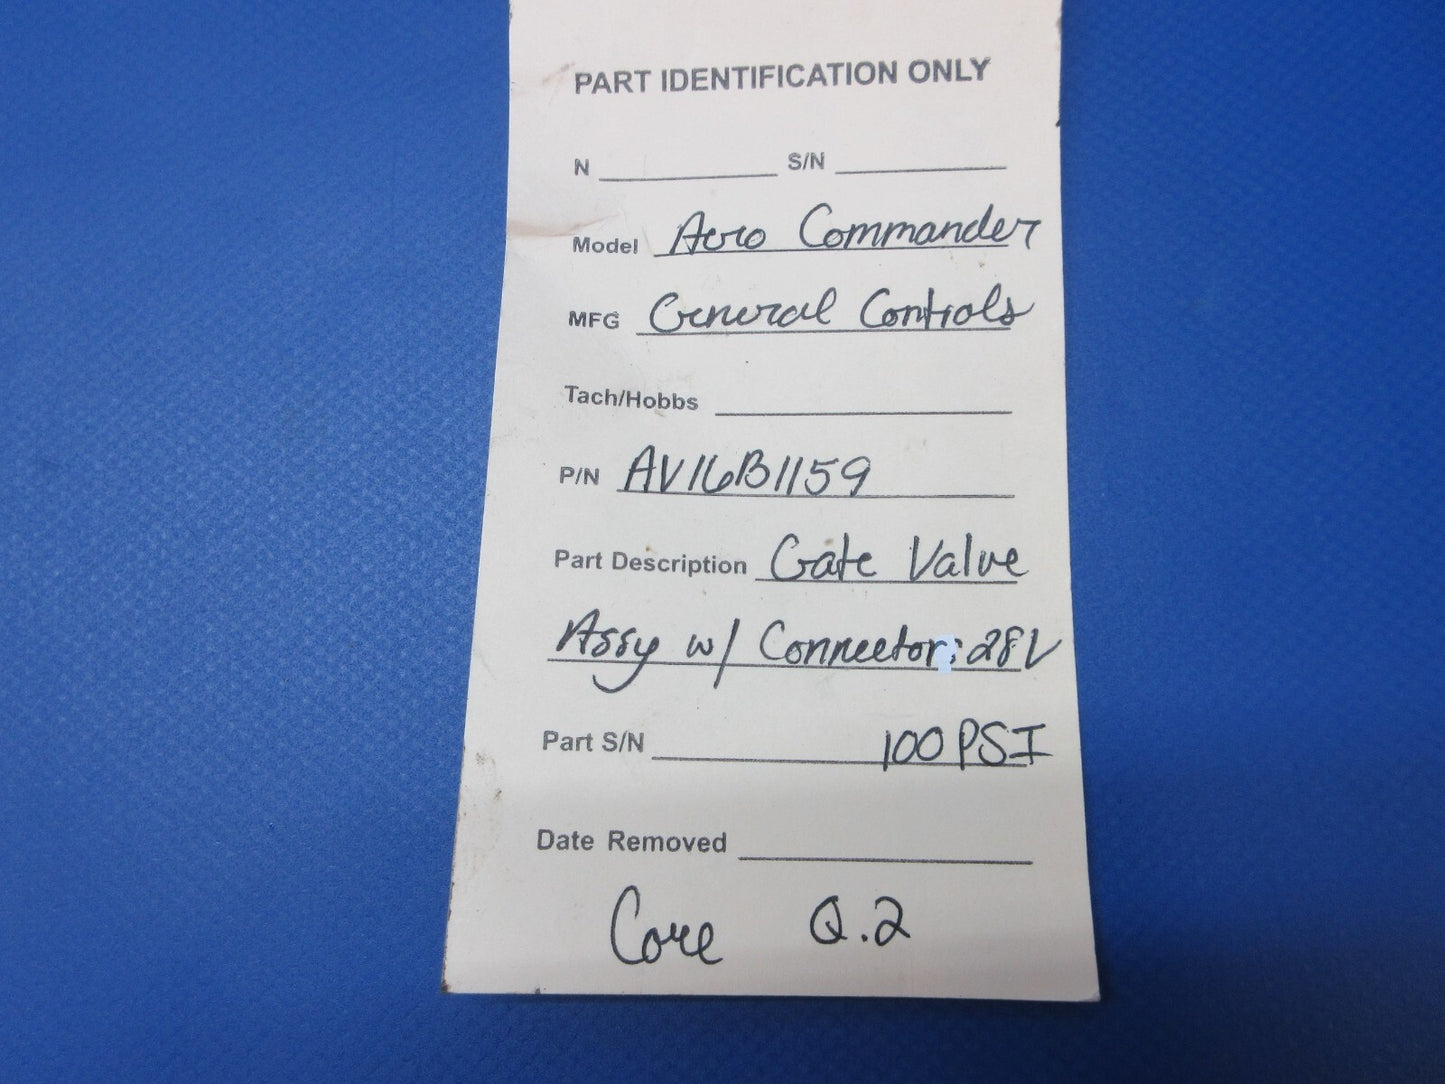 PART IDENTIFICATION ONLY
N S/N
Model Aero Commander
MFG General Controls
Tach/Hobbs
P/N AV16B1159
Part Description Gate Valve
Assy w/ Connector: 28V
Part S/N 100 PSI
Date Removed
Core Q.2